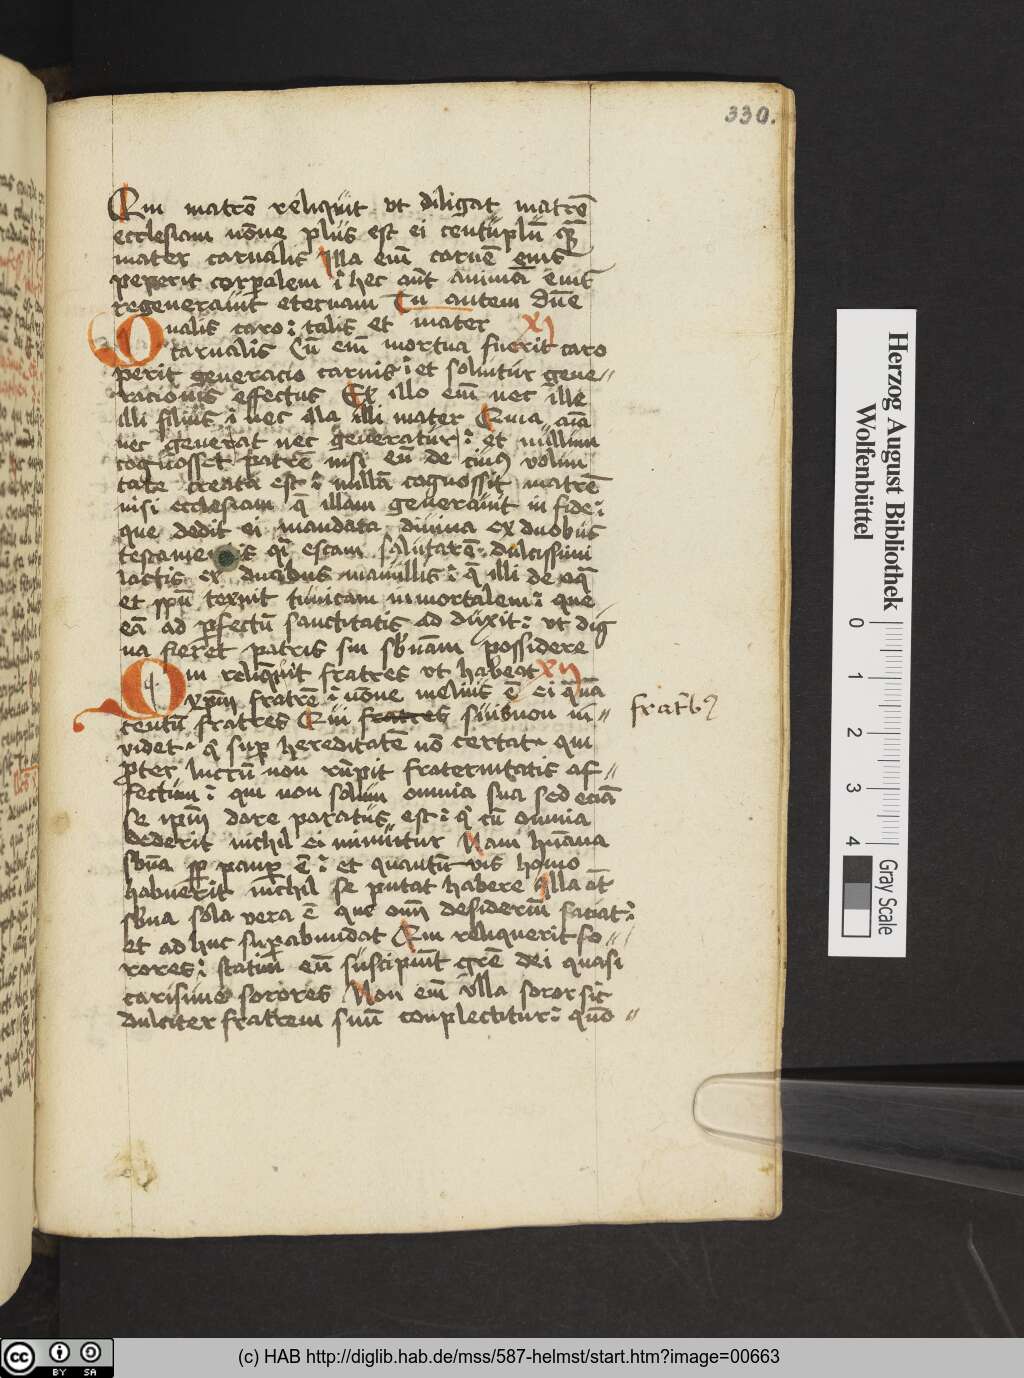 330.
Qui matrē reliquit vt diligat matrē
ecclesiam nōne plus est ei centuplū
mater carnalis Illa enī carnē eius
peperit corporalem hec aūt animā eius
regenerauit eternam Tu autem dūe
Qualis caro talis et mater XI
carnalis Cū enī mortua fuerit caro
perit generacio carnis et soluitur gene〃
racionis effectus Ex illo enī nec ille
illi filius nec illa illi mater Quia aīa
nec generat nec generatur et nullum
cognosset patrē nisi eū de cuius volun
tate creata est nullā cognossit matrē
nisi ecclesiam q̄ illam generauit in fide
que dedit ei mandata diuina ex duobus
testamentis escam salutarē dulcissimi
lactis ex duobus mamillis q̄ illi de aq̄
et spū texuit tunicam immortalem que
eā ad perfectū sanctitatis ad duxit vt dig
na fieret patris sui sb̄nam possidere
Qui reliquit fratres vt habeat XII
xp̄m fratrē nōne melius ē ei quā
centū fratres Qui fratres suis non in〃
fratrib9
videt q̄ super hereditatē nō certat qui
propter lucrū non rūpit fraternitatis af〃
fectum qui non solum omnia sua sed eciā
se ipm̄ dare paratus est q̄ cū omnia
dederit nichil ei minuitur Nam hūana
sb̄na pauper ē et quantū vis homo
habuerit nichil se putat habere Illa āt
sb̄na sola vera ē que om̄ desideriū saciat
et ad huc superabundat Qui reliquerit so〃
rores statim eū suscipiūt dei quasi
carissime sorores Non enī vlla soror sic
dulciter fratrem suū conplectitur quō〃
Herzog August Bibliothek
Wolfenbüttel
0 1 2 3 4
Gray Scale
(c) HAB http://diglib.hab.de/mss/587-helmst/start.htm?image=00663
cc BY SA